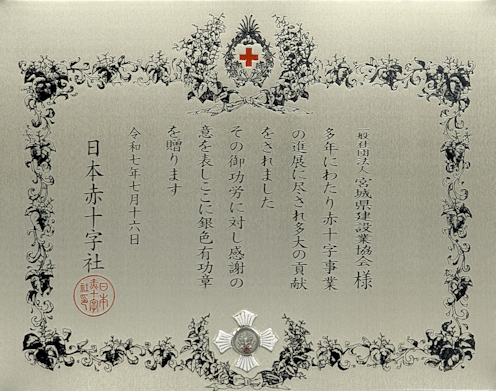 一般社団法人 宮城県建設業協会 様
多年にわたり赤十字事業
の進展に尽され多大の貢献
をされました
その御功労に対し感謝の
意を表しここに銀色有功章
を贈ります
令和七年七月十六日
日本赤十字社
日本
赤十字
社印